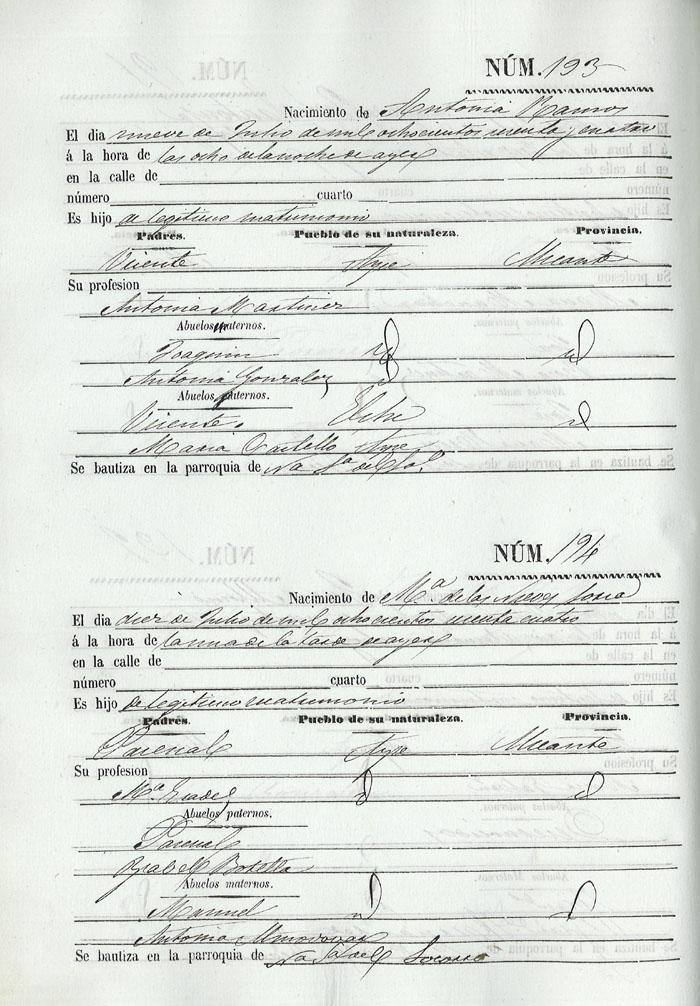 NÚM. 193
Nacimiento de Antonia Ramos
El dia nueve de Julio de mil ochocientos sesenta y cuatro
á la hora de las ocho de la noche de ayer
en la calle de
número cuarto
Es hijo de legitimo matrimonio
Padres. Pueblo de su naturaleza. Provincia.
Vicente Aspe Alicante
Su profesion
Antonia Martinez
Abuelos maternos.
Joaquin id id
Antonia Gonzalez
Abuelos paternos.
Vicente. Elche id
Maria Castello Aspe
Se bautiza en la parroquia de Na Sa del
NÚM. 194
Nacimiento de Mª de las Nieves Soria
El dia diez de Julio de mil ochocientos sesenta cuatro
á la hora de la una de la tarde de ayer
en la calle de
número cuarto
Es hijo de legitimo matrimonio
Padres. Pueblo de su naturaleza. Provincia.
Pascual Aspe Alicante
Su profesion
Mª id id
Abuelos paternos.
Pascual
Ysabel Botella
Abuelos maternos.
Manuel id id
Antonia Almodovar
Se bautiza en la parroquia de Na Sa del Socorro